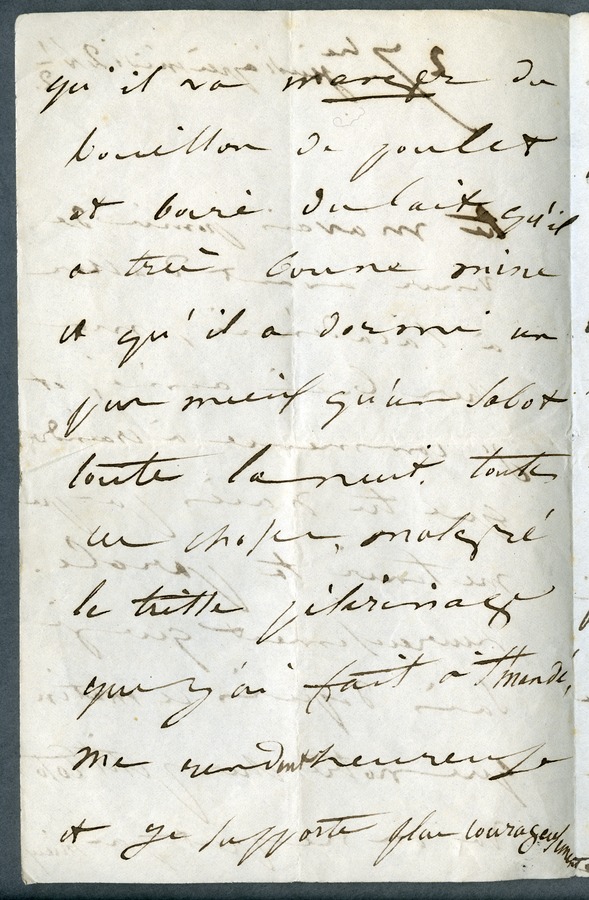 qu'il va manger du
bouillon de poulet
et boire du lait, qu'il
a très bonne mine
et qu'il a dormi un
peu mieux qu'un sabot
toute la nuit. toutes
ces choses, malgré
le triste pélerinage
que j'ai fait à St Mandé,
me rendent heureuse
et je supporte plus courageusement